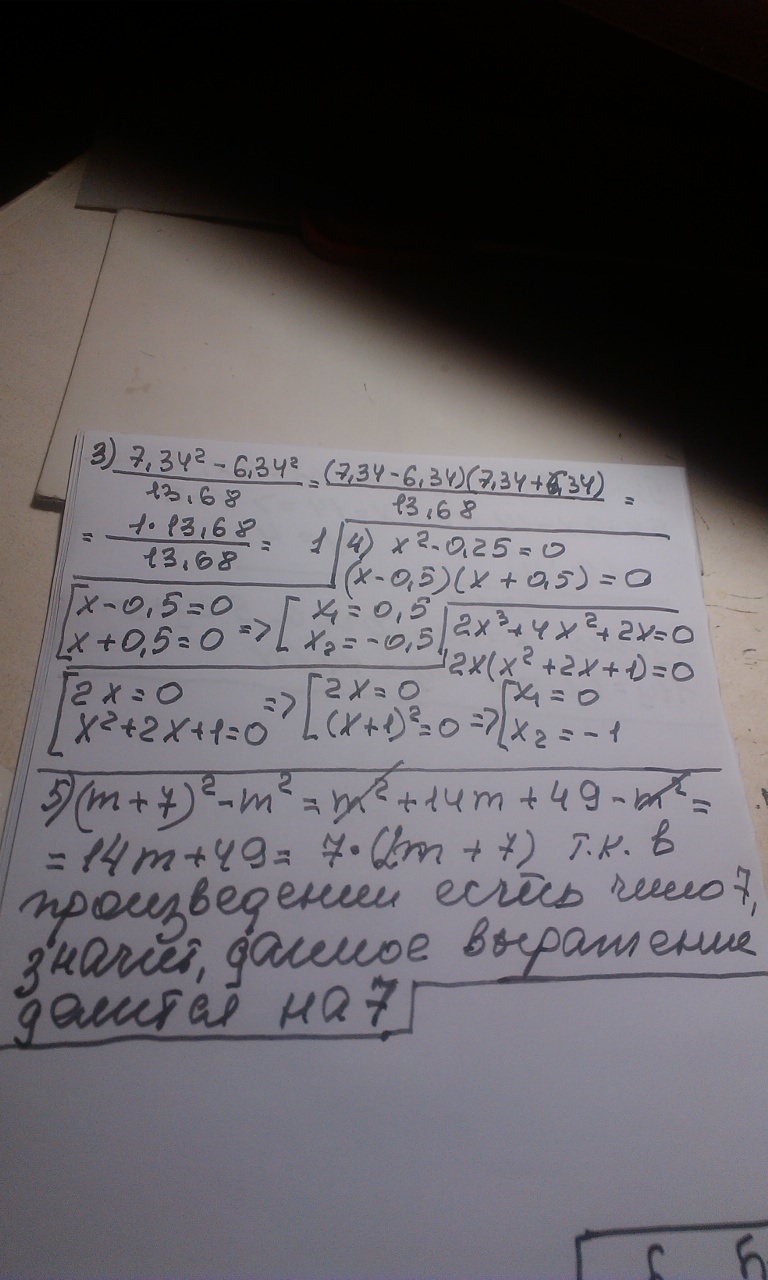 3) 7,34² - 6,34² / 13,68 = (7,34 - 6,34)(7,34 + 6,34) / 13,68 =
= 1·13,68 / 13,68 = 1
4) x² - 0,25 = 0
(x - 0,5)(x + 0,5) = 0
[x - 0,5 = 0 => [x₁ = 0,5
x + 0,5 = 0 x₂ = -0,5
2x³ + 4x² + 2x = 0
2x(x² + 2x + 1) = 0
[2x = 0 => [2x = 0 => [x₁ = 0
x² + 2x + 1 = 0 (x + 1)² = 0 x₂ = -1
5) (m + 7)² - m² = m² + 14m + 49 - m² =
= 14m + 49 = 7·(2m + 7) т.к. в
произведении есть число 7,
значит, данное выражение
делится на 7